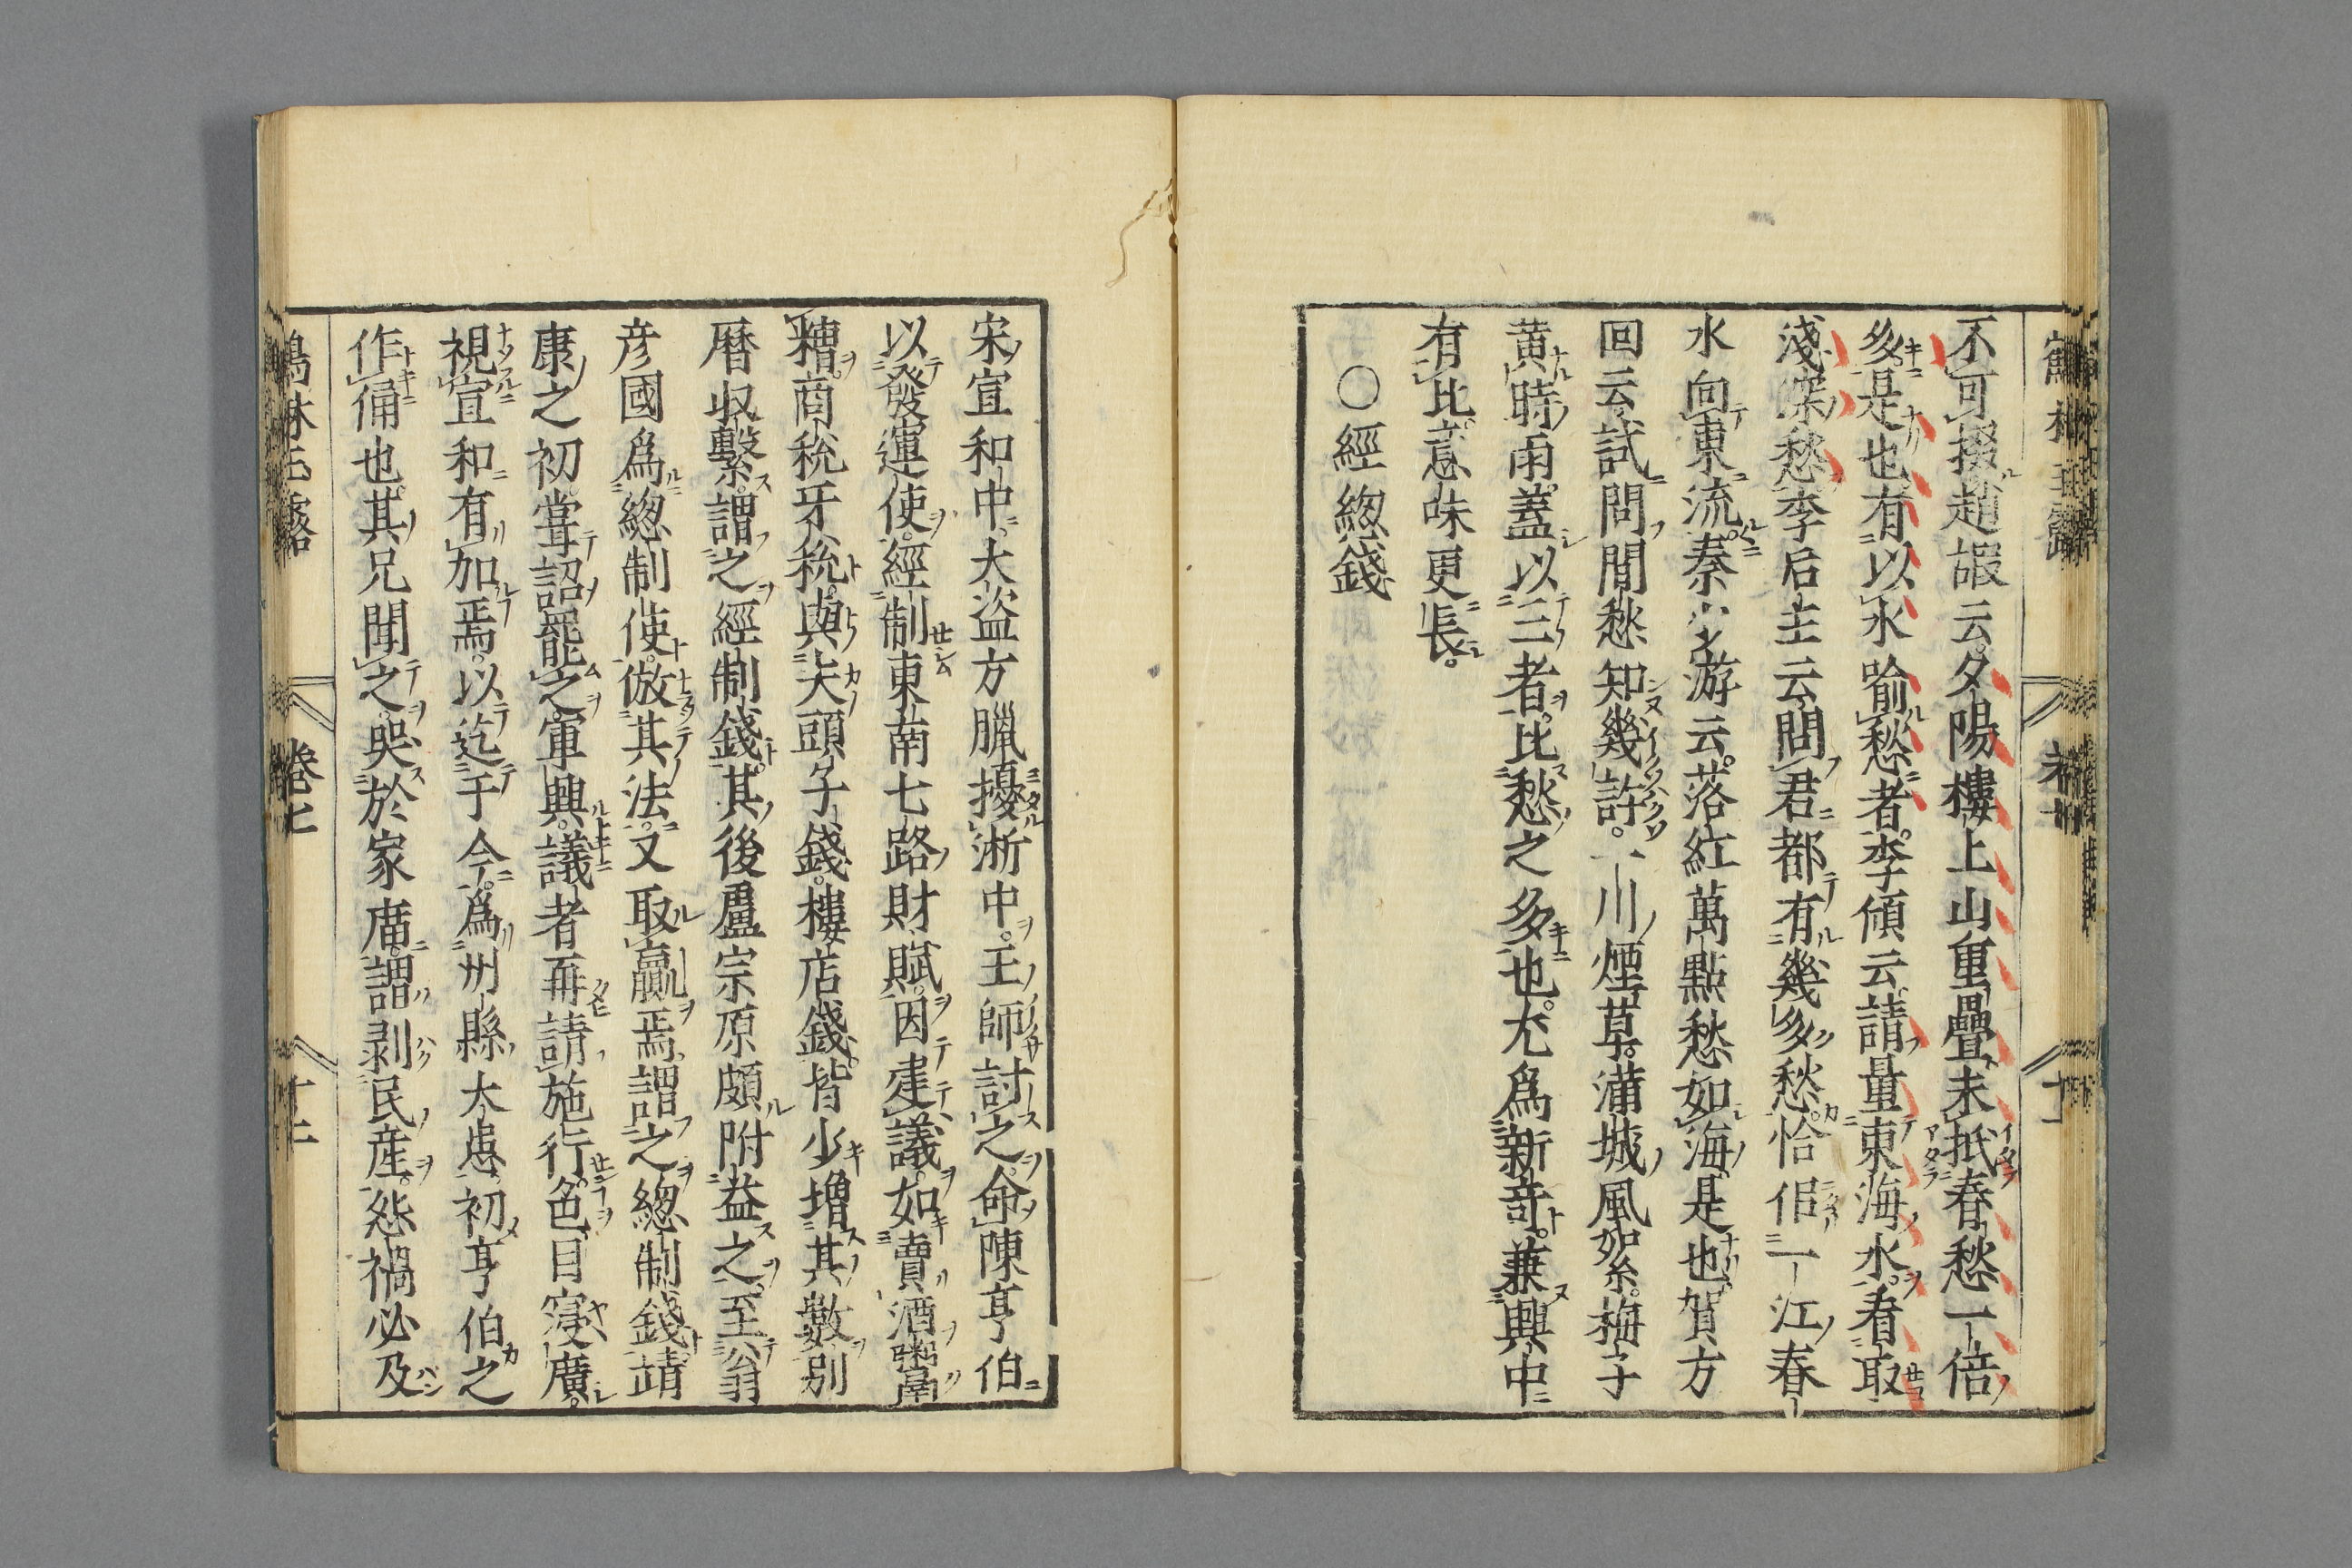 鶴林玉露
不可掇趙嘏云夕陽樓上山重疊未抵春愁一倍
多是也有以水喻愁者李頎云請量東海水看取
淺深愁李后主云問君都有幾多愁恰佀一江春
水向東流秦少游云落紅萬點愁如海是也賀方
回云試問閒愁知幾許一川煙草滿城風絮梅子
黄時雨蓋以三者比愁之多也尤爲新竒兼興中
有比意味更長
〇經總錢
宋宣和中大盜方臘擾浙中王師討之命陳亨伯
以發運使經制東南七路財賦因建議如賣酒鬻
糟商稅牙稅與夫頭子錢樓店錢皆少增其數别
曆收繫謂之經制錢其後盧宗原頗附益之至翁
彦國爲總制使倣其法又取贏焉謂之總制錢靖
康之初嘗詔罷之軍興議者再請施行色目寖廣
視宣和有加焉以迄于今爲州縣大患初亨伯之
作俑也其兄聞之哭於家廟謂剥民產怨禍必及
鶴林玉露 卷七 十二